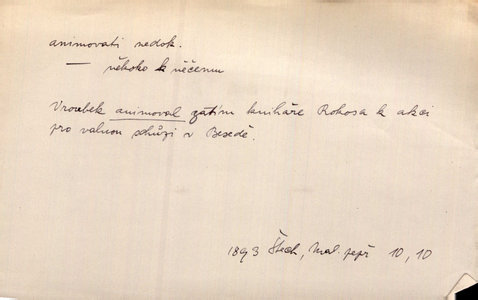 animovati nedok.
— někoho k něčemu
Vroubek animoval zatím knihaře Rokosa k akci
pro valnou schůzi v Besedě.
1893 Štech, Mal. pepř 10, 10